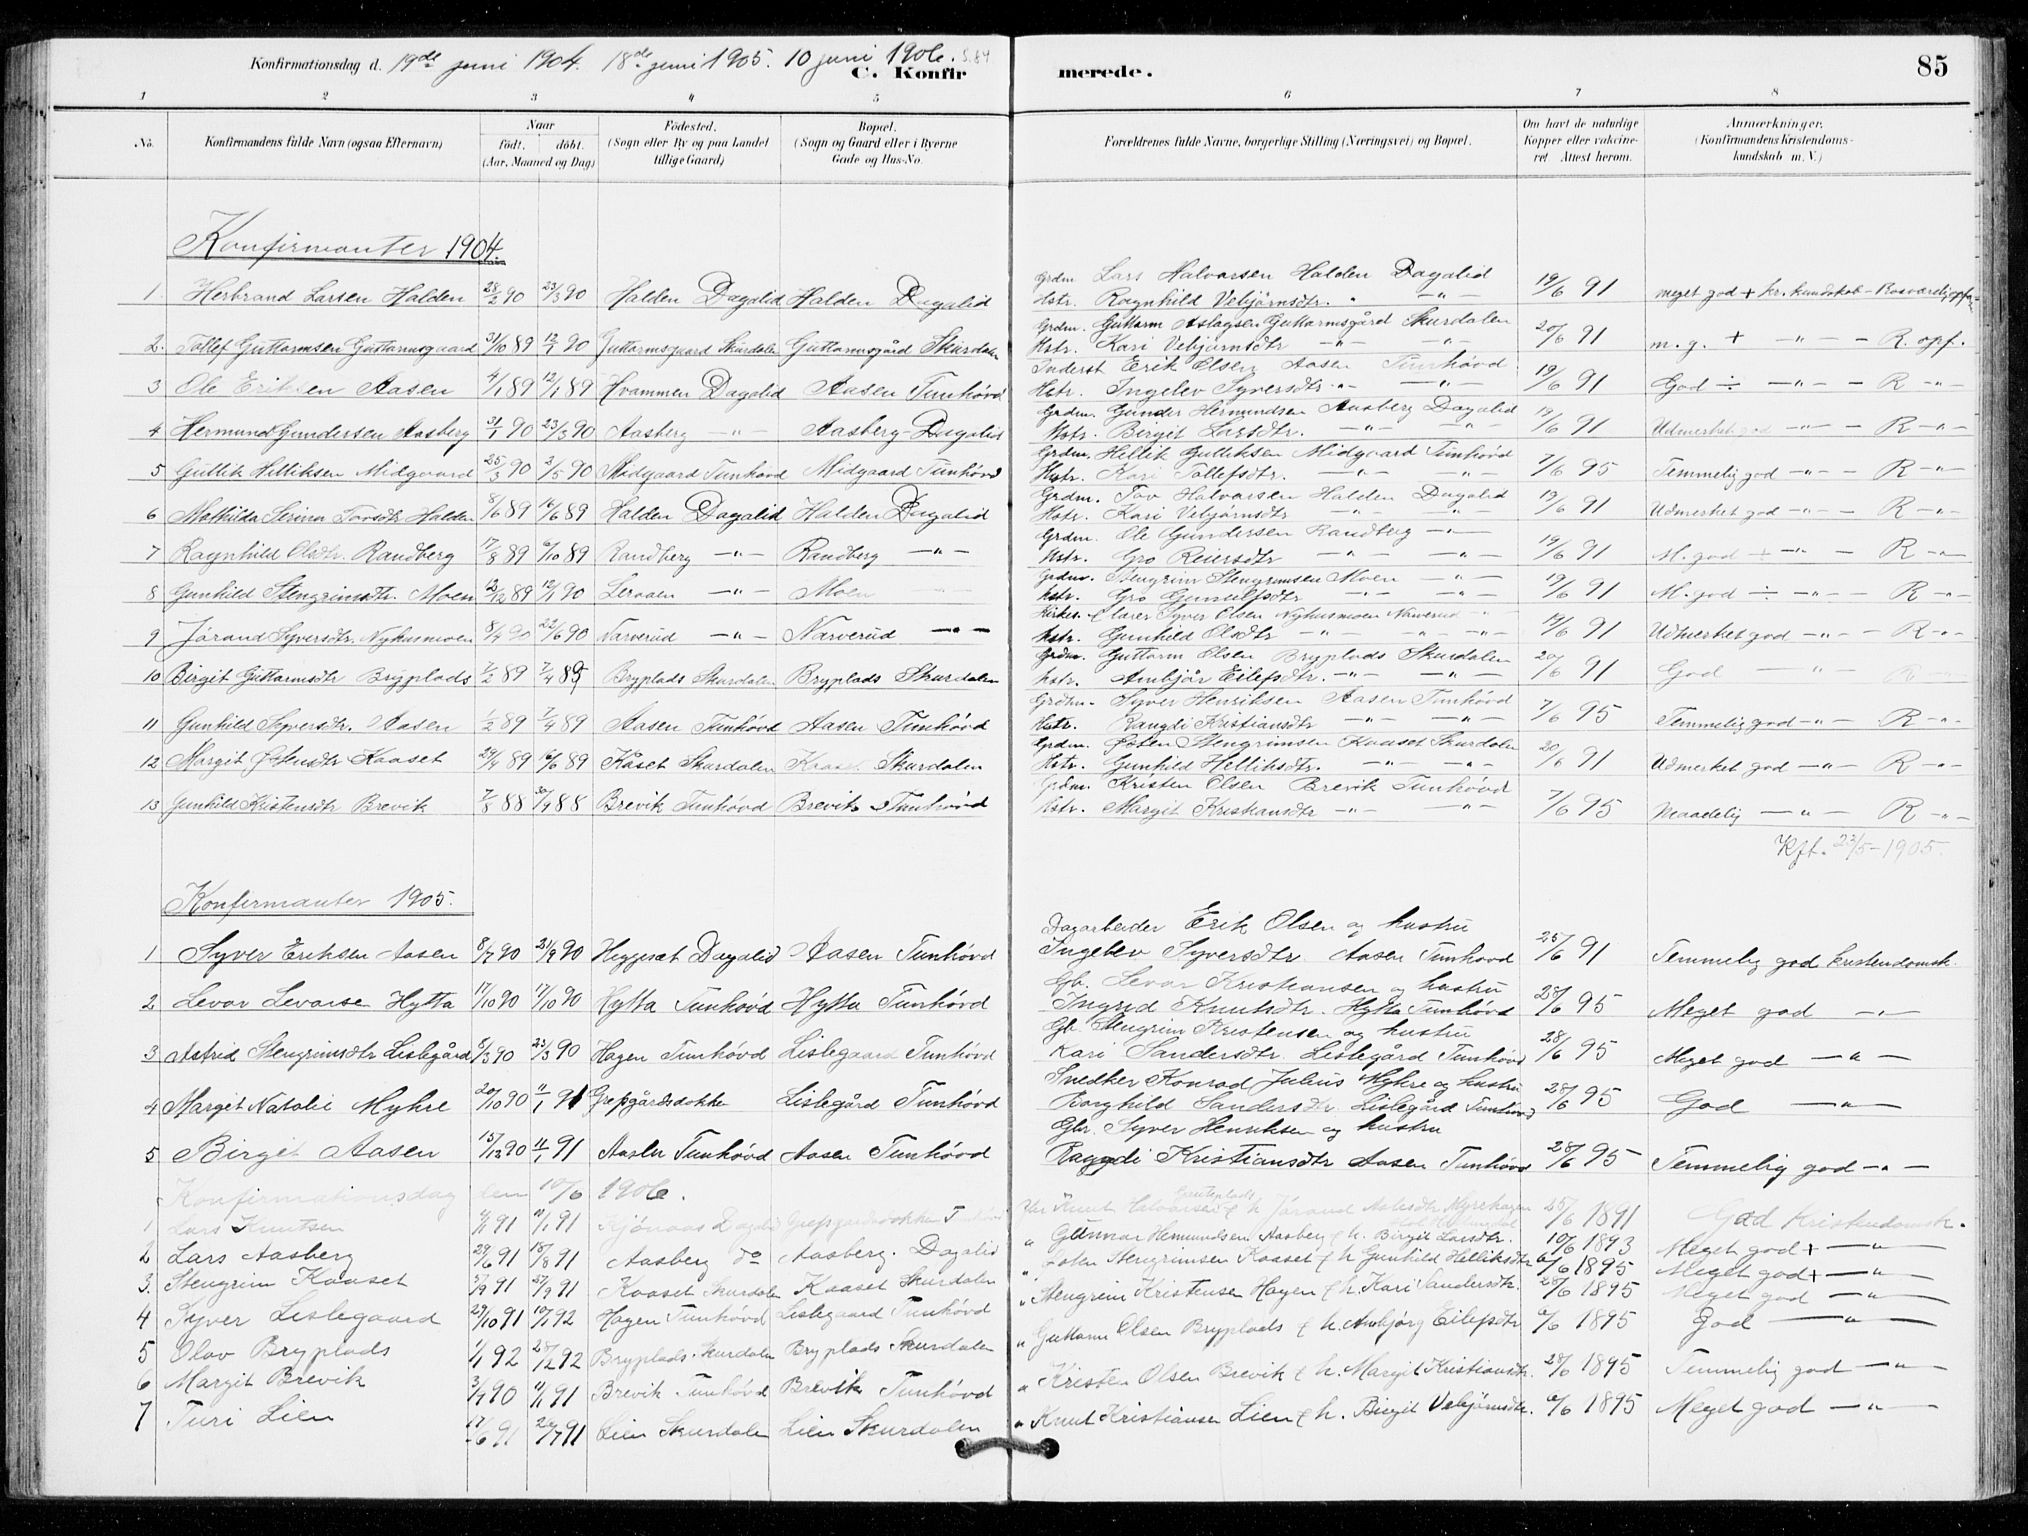 Konfirmationsdag d. 19de juni 1904. 18de juni 1905. 10 juni 1906. S. 84
C. Konfirmerede. 85
1 2 3 4 5 6 7 8
No. Konfirmandens fulde Navn (ogsaa Efternavn) Naar født. døbt. (Aar, Maaned og Dag) Fødested. (Sogn eller By og paa Landet tillige Gaard) Bopæl. (Sogn og Gaard eller i Byerne Gade og Hus-No. Forældrenes fulde Navne, borgerlige Stilling (Næringsvei) og Bopæl. Om havt de naturlige Kopper eller vakcineret Attest herom. Anmærkninger. (Konfirmandens Kristendomskundskab m. V.)
Konfirmanter 1904.
1 Herbrand Larsen Halden 28/2 90 23/3 90 Halden Dagalid Halden Dagalid Grdm. Lars Halvarsen Halden Dagalid 19/6 91 meget god + kr. kundskab -
Hstr. Ragnhild Vebjørnsdtr. " -"-
2. Tollef Guttormsen Guttormsgaard 31/10 89 12/1 90 Guttormsgaard Skurdalen Guttormsgård Skurdalen Grdm. Guttorm Aslagsen Guttormsgård Skurdalen 20/6 91 m. g. + -"- - R. opf.
Hstr. Kari Vebjørnsdtr -"- -"-
3 Ole Eriksen Aasen 4/1 89 12/1 89 Hvammen Dagalid Aasen Tunhövd Inderst Erik Olsen Aasen Tunhövd 19/6 91 God ÷ -"- - R -"-
Hstr. Ingelev Syversdtr -"- -"-
4 Hermund Gundersen Aasberg 31/1 90 23/3 90 Aasberg -"- Aasberg - Dagalid Grdm. Gunder Hermundsen Aasberg Dagalid 19/6 91 Udmerket god -"- - R -"-
Hstr. Birgit Larsdtr. -"- -"-
5 Gullik Helliksen Midgaard 25/3 90 3/5 90 Midgaard Tunhovd Midgaard Tunhövd Grdm. Hellik Gulliksen Midgaard Tunhövd 7/6 95 Temmelig god -"- - R -"-
Hstr. Kari Tollefsdtr. -"- "
6 Mathilda Serina Tovsdtr Halden 8/6 89 16/6 89 Halden Dagalid Halden Dagalid Grdm. Tov Halvarsen Halden Dagalid 19/6 91 Udmerket god -"- - R -"-
Hstr. Kari Vebjørnsdtr -"- "
7 Ragnhild Olsdtr. Randberg 17/8 89 6/10 89 Randberg -"- Randberg -"- Grdm. Ole Gundersen Randberg -"- 19/6 91 M. god + -"- - R -"-
Hstr. Gro Reiersdtr -"- -"-
8 Gunhild Stengrimsdtr. Moen 12/12 89 12/1 90 -"- Moen Grdm. Stengrim Stengrimsen Moen -"- 19/6 91 M. god ÷ -"- - R -"-
Hstr. Gro Gunulfsdtr -"- -"-
9 Jörand Syversdtr. Nyhusmoen 8/4 90 22/6 90 Narverud -"- Narverud -"- Syver Olsen Nyhusmoen Narverud 19/6 91 Udmerket god -"- - R -"-
Hstr. Gunhild Olsdtr -"- -"- -"-
10 Birgit Guttormsdtr Bryplads 7/2 89 7/4 89 Bryplads Skurdalen Bryplads Skurdalen Grdm. Guttorm Olsen Bryplads Skurdalen 20/6 91 God -"- R
Hstr. Ambjör Eilefsdtr. -"- -"-
11 Gunhild Syversdtr. Aasen 1/2 89 7/4 89 Aasen Tunhövd Aasen Tunhövd Grdm. Syver Henriksen Aasen Tunhövd 7/6 95 Temmelig god -"- - R -"-
Hstr. Rangdi Kristiansdtr -"- -"-
12 Margit Östensdtr Kaaset 29/4 89 16/6 89 Kåset Skurdalen Kaaset Skurdalen Grdm. Östen Stengrimsen Kaaset Skurdalen 20/6 91 Udmerket god -"- R -"-
Hstr. Gunhild Helliksdtr. -"- -"-
13 Gunhild Kristensdtr Brevik 7/8 88 30/9 88 Brevik Tunhövd Brevik Tunhövd Grdm. Kristen Olsen Brevik Tunhövd 7/6 95 Maadelig -"- R -"-
Hstr. Margit Kristiansdtr -"- -"-
Kft. 22/5-1905.
Konfirmanter 1905.
1 Syver Eriksen Aasen 8/7 90 21/9 90 Heggeset Dagalid Aasen Tunhövd Dagarbeider Erik Olsen og hustru
Ingelev Syversdtr. Aasen Tunhovd 25/6 91 Temmelig god kristendomsk.
2 Levor Levorse Hytta 17/10 90 17/10 90 Hytta Tunhövd Hytta Tunhövd Gb. Levor Kristiansen og hustru
Ingrid Knutsdtr. Hytta Tunhövd 28/6 95 Meget god -"-
3 Astrid Stengrimsdtr Lislegård 8/3 90 23/3 90 Hagen Tunhövd Lislegaard Tunhövd Gb. Stengrim Kristensen og hustru
Kari Sandersdtr. Lislegård Tunhövd 28/6 95 Meget god -"-
4 Margit Natalie Myhre 20/10 90 11/1 91 Grepgårdsdokke Lislegård Tunhövd Snedker Konrad Julius Myhre og hustru
Borghild Sandersdtr. Lislegård Tunhövd 28/6 95 God -"-
5 Birgit Aasen 15/12 90 11/1 91 Aaslen Tunhövd Aasen Tunhövd Gbr. Syver Henriksen og hustru
Rangdi Kristiansdtr Aasen Tunhövd 28/6 95 Temmelig god -"-
Konfirmationsdag den 10/6 1906.
1 Lars Knutsen 91 91 Kjönaas Dagalid Grepgaardsdokke Knut Halvarsen & h. Jörand 25/6 1891 God Kristendomsk.
2 Lars Aasberg 29/6 91 15/8 91 Aasberg do Aasberg. Dagalid " Gunnar Hemundsen Aasberg & h. Birgit Larsdtr. 10/6 1893 Meget god + -"-
3. Stengrim Kaaset 3/9 91 27/9 91 Kaaset Skurdalen Kaaset Skurdalen " Östen Stengrimsen Kaaset & h Gunhild Helliksdtr 6/6 1895 Meget god + -"-
4 Syver Lislegaard 29/10 91 10/1 92 Hagen Tunhövd Lislegaard Tunhövd " Stengrim Kristensen Hagen & h. Kari Sandersdtr. 28/6 1895 Meget god -"-
5 Olav Bryplads 1/1 92 28/2 92 Bryplads. Skurdalen Bryplads Skurdalen " Guttorm Olsen Bryplads & h. Ambjørg Eilefsdtr 6/6 1895 God -"-
6 Margit Brevik 3/7 90 11/1 91 Brevik Tunhövd Brevik Tunhövd " Kristen Olsen Brevik & h. Margit Kristiansdtr. 28/6 1895 Temmelig god -"-
7 Turi Lien 17/6 91 26/7 91 Lien Skurdalen Lien Skurdalen " Knut Kristiansen Lien & h. Birgit Vebjørnsdtr. 6/6 1895 Meget god -"-